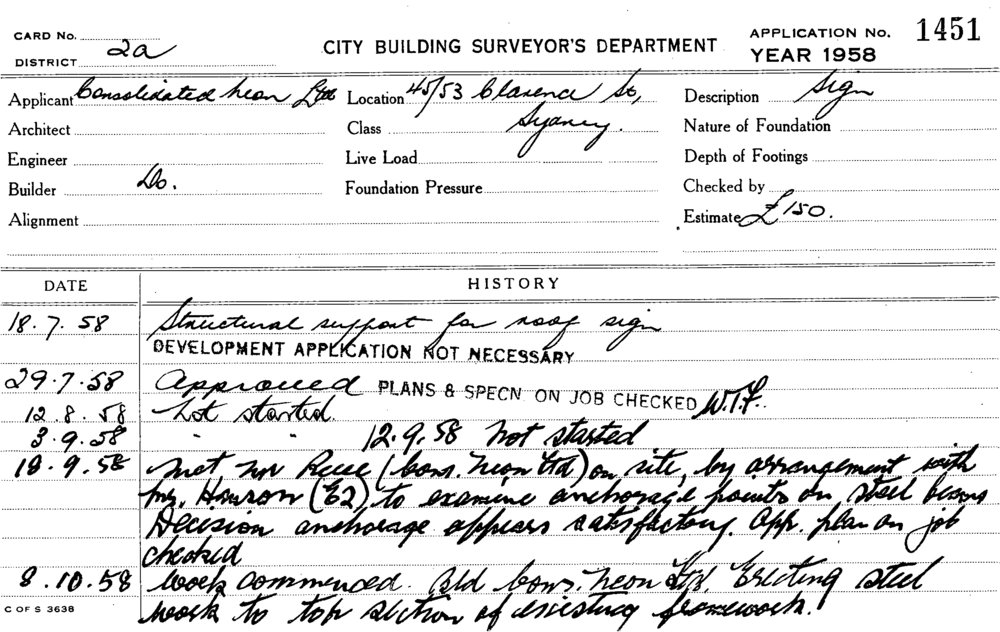 CARD No.
2a
DISTRICT
CITY BUILDING SURVEYOR'S DEPARTMENT
APPLICATION No. 1451
YEAR 1958
Applicant Consolidated Neon Ltd
Location 45/53 Clarence St,
Sydney.
Description Sign
Architect
Class
Nature of Foundation
Engineer
Live Load
Depth of Footings
Builder Do.
Foundation Pressure
Checked by
Alignment
Estimate £150.
DATE HISTORY
18.7.58 Structural support for roof sign
DEVELOPMENT APPLICATION NOT NECESSARY
29.7.58 Approved PLANS & SPECN ON JOB CHECKED W.T.F.
12.8.58 Not started.
3.9.58 " " 12.9.58 Not started
18.9.58 Met Mr (Cons. Neon Ltd) on site, by arrangement with
Mr. (E2) to examine anchorage points on steel beams
Decision anchorage appears satisfactory. App. plan on job
checked
8.10.58 Work commenced. Bld Cons. Neon Ltd. Erecting steel
work to top section of existing framework.
C OF S 3638